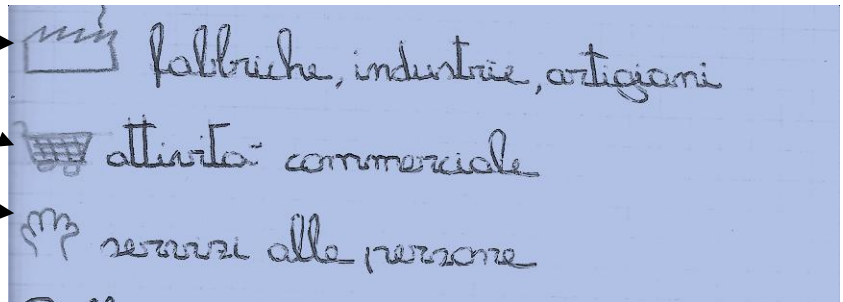 fabbriche, industrie, artigiani
attività commerciale
servizi alle persone